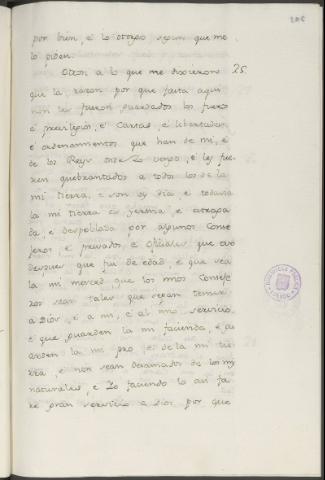 por bien, e lo otorgo segun que me
lo piden.
Otrosi a lo que me dixieron 25.
que la razon por que fasta aqui
non les fueron guardados los fueros
e previlegios, e Cartas, e libertades,
e ordenamientos que han de mi, e
de los Reyes onde Yo vengo, e les fue-
ren quebrantados a todos los de la
mi tierra, e son oy dia, e toda via
la mi tierra es yerma, e astraga
da, e despoblada por algunos Conse
jeros e privados, e Oficiales que ove
despues que fui de edad, e que sea
la mi merced que los mios Conseje
ros sean tales que sepan temer
a Dios, e a mi, e al mio servicio,
e que guarden la mi facienda, e a
la mi pro e de la mi tie
rra, e non sean deramados de los mis
naturales, e Yo faciendo lo asi fa
re gran servicio a Dios por que